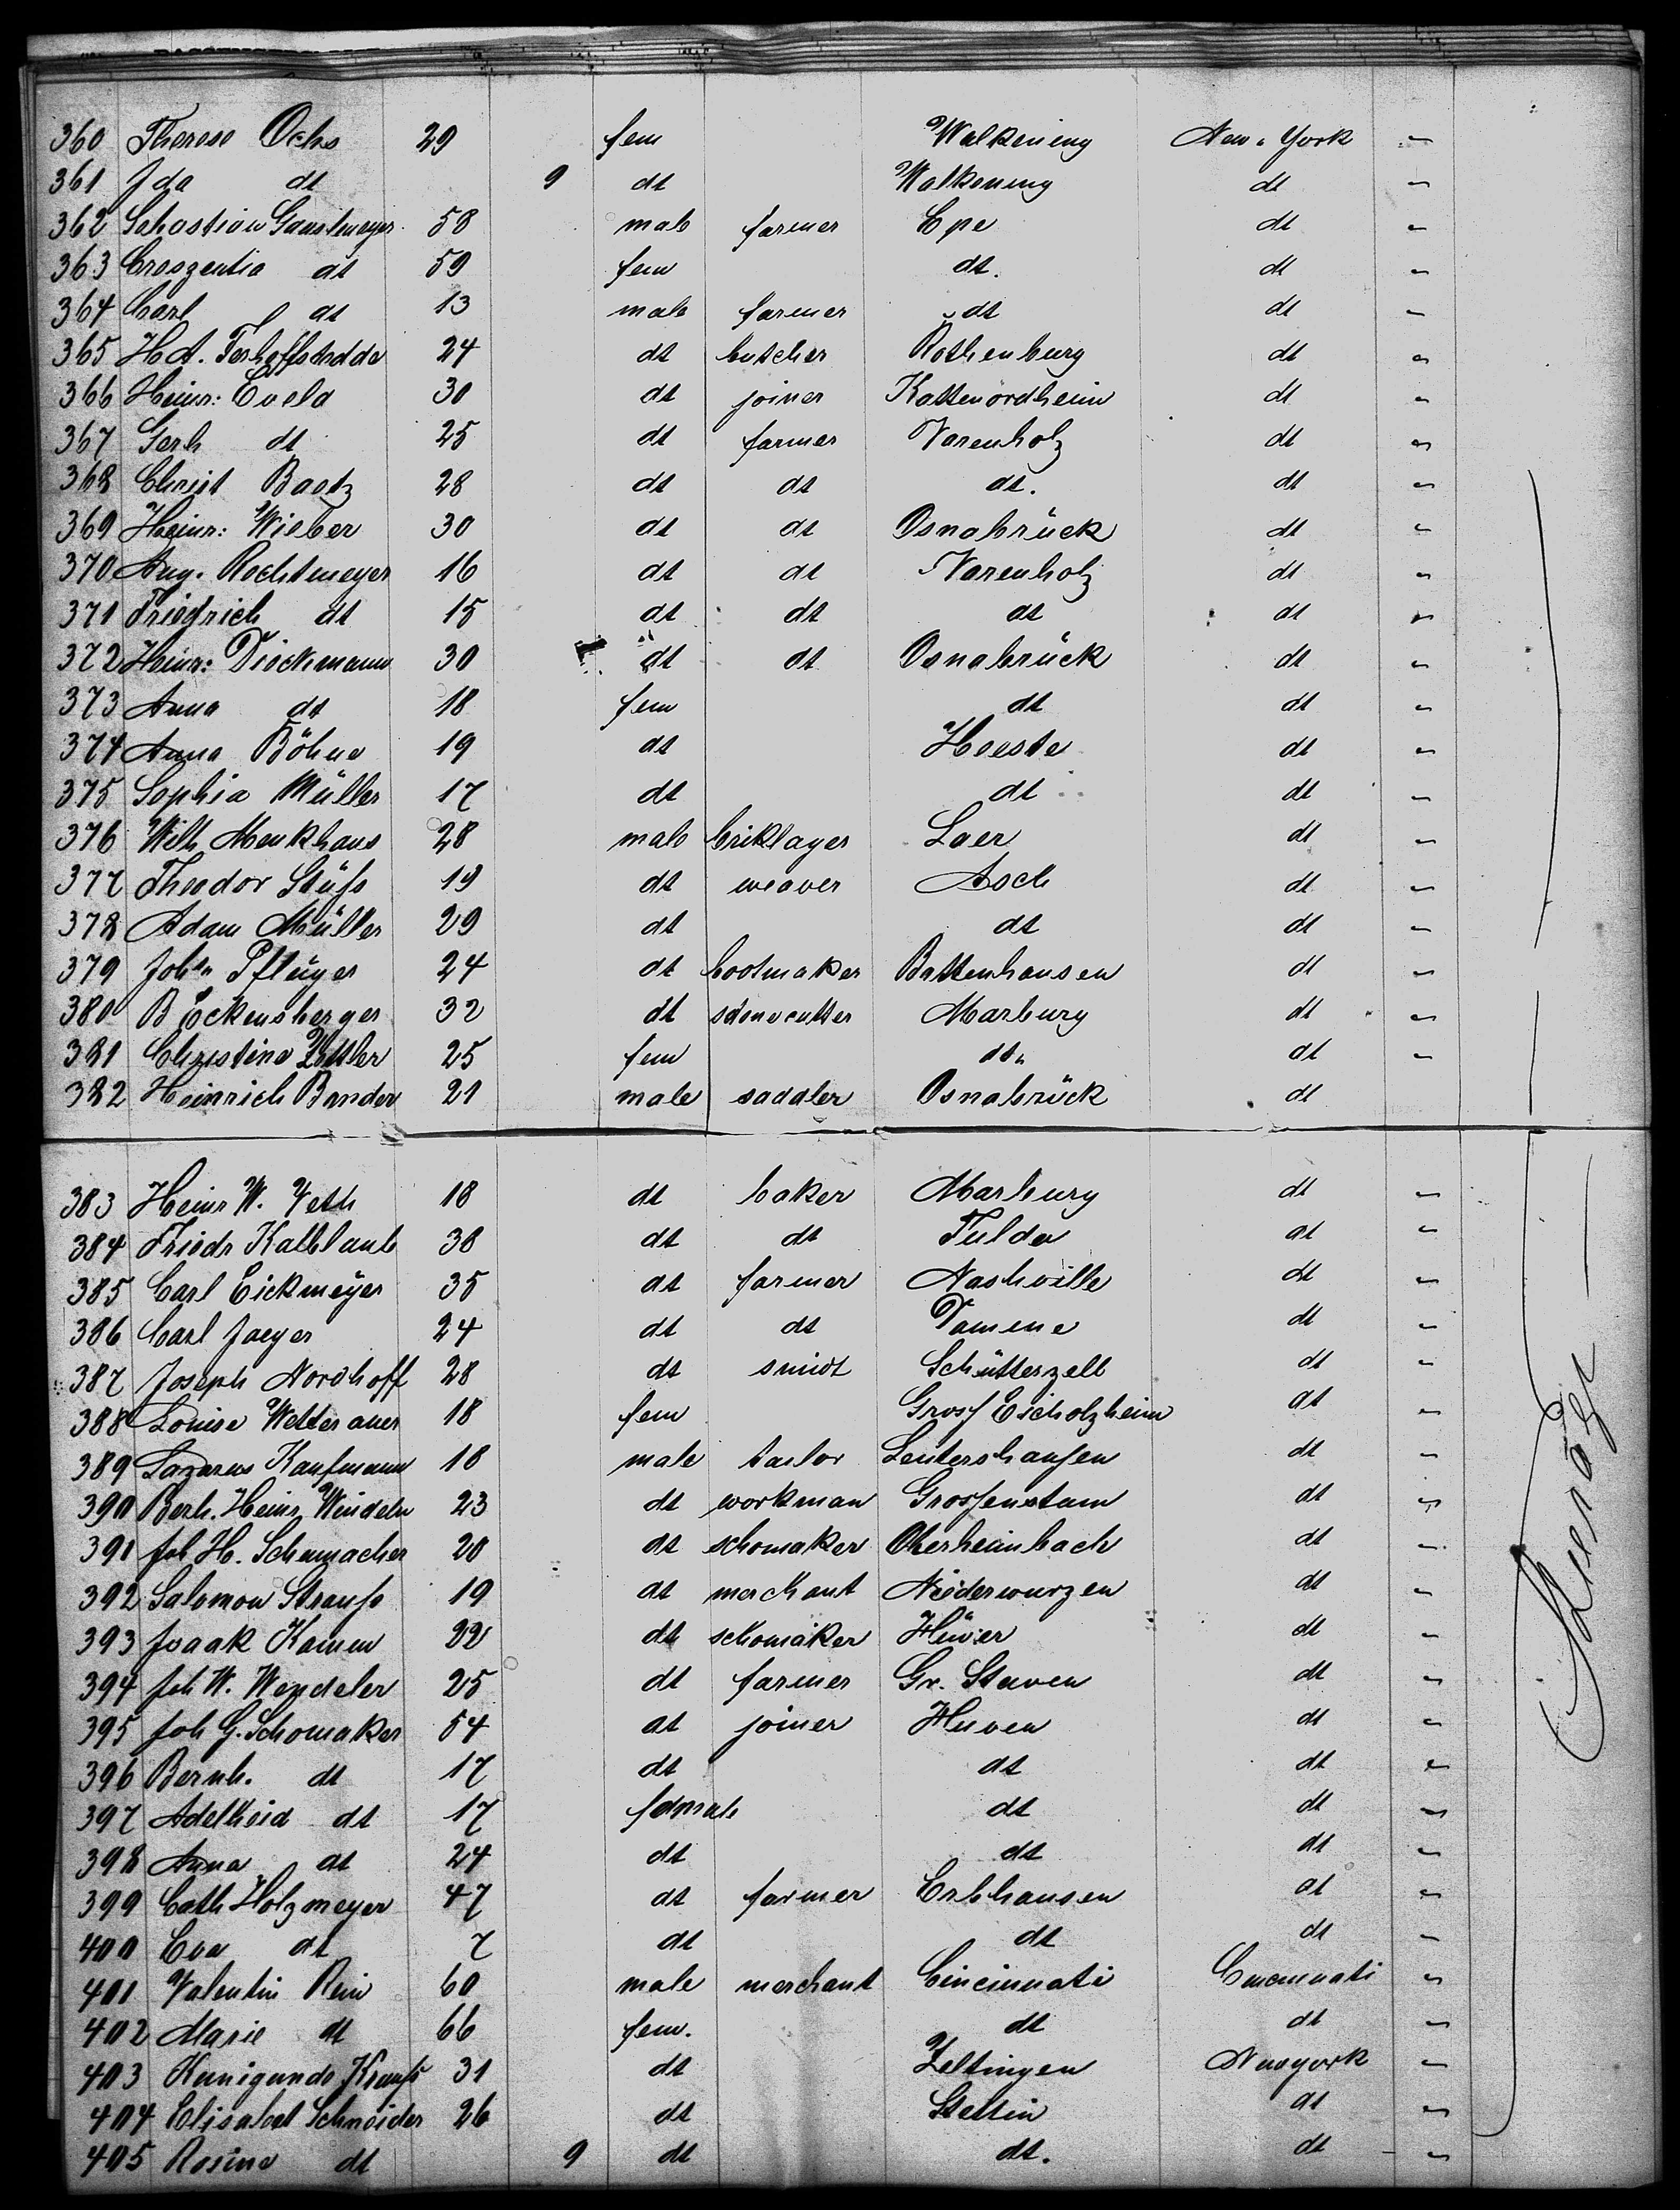 360 Therese Ochs 29 fem Walkening New York "
361 Ida dt 9 dt Walkening dt "
362 Sebastian Ganslmeyer 58 male farmer Epe dt "
363 Creszentia dt 59 fem dt. dt "
364 Carl dt 13 male farmer dt dt "
365 H A. 24 dt butcher Rothenburg dt "
366 Heinr: Eveld 30 dt joiner Kattenordheim dt "
367 Gerh dt 25 dt farmer Varenholz dt "
368 Christ Baetz 28 dt dt dt. dt "
369 Heinr: Wieber 30 dt dt Osnabrück dt "
370 Aug. Rochtmeyer 16 dt dt Varenholz dt "
371 Friedrich dt 15 dt dt dt dt "
372 Heinr: Dieckmann 30 dt dt Osnabrück dt "
373 Anna dt 18 fem dt dt "
374 Anna Böhne 19 dt Hoeste dt "
375 Sophia Müller 17 dt dt dt "
376 Wilh Menkhaus 28 male briklayer Laer dt "
377 Theodor Stüfs 19 dt weaver Asch dt "
378 Adam Müller 29 dt dt dt "
379 Johs Pflüger 24 dt bootmaker Battenhausen dt "
380 B Böckensberger 32 dt stonecutter Marburg dt "
381 Christina 25 fem dt " dt "
382 Heinrich Bander 21 male saddler Osnabrück dt
383 Heinr W. Veth 18 dt baker Marburg dt "
384 Friedr Kalblaub 38 dt dt Fulda dt "
385 Carl Eickmeyer 35 dt farmer Nashville dt "
386 Carl Jaeger 24 dt dt Damme dt "
387 Joseph Nordhoff 28 dt smidt Schütterzell dt "
388 Louise Wetterauer 18 fem Grosf Eicholzheim dt "
389 Lazarus Kaufmann 18 male tailor Leutershaufen dt "
390 Berh. Heinr Windeln 23 dt workman Grosfenstam dt "
391 Joh H. Schumacher 20 dt schomaker Oberheimbach dt "
392 Salomon Straufs 19 dt merchant Niederwurzen dt "
393 Isaak Kamm 22 dt schomaker Hüver dt "
394 Joh W. Wendeler 25 dt farmer Gr. Staven dt "
395 Joh G. Schomaker 54 dt joiner Huven dt "
396 Bernh. dt 17 dt dt dt "
397 Adelheid dt 17 female dt dt "
398 Anna dt 24 dt dt dt "
399 Cath Holzmeyer 47 dt farmer Erbhausen dt "
400 Eva dt 7 dt dt dt "
401 Valentin Rein 60 male merchant Cincinnati Cincinnati "
402 Marie dt 66 fem. dt dt "
403 Kunigunde Kraufs 31 dt Zeltingen Newyork "
404 Elisabet Schneider 26 dt Stettin dt "
405 Rosine dt 9 dt dt. dt "
Steerage